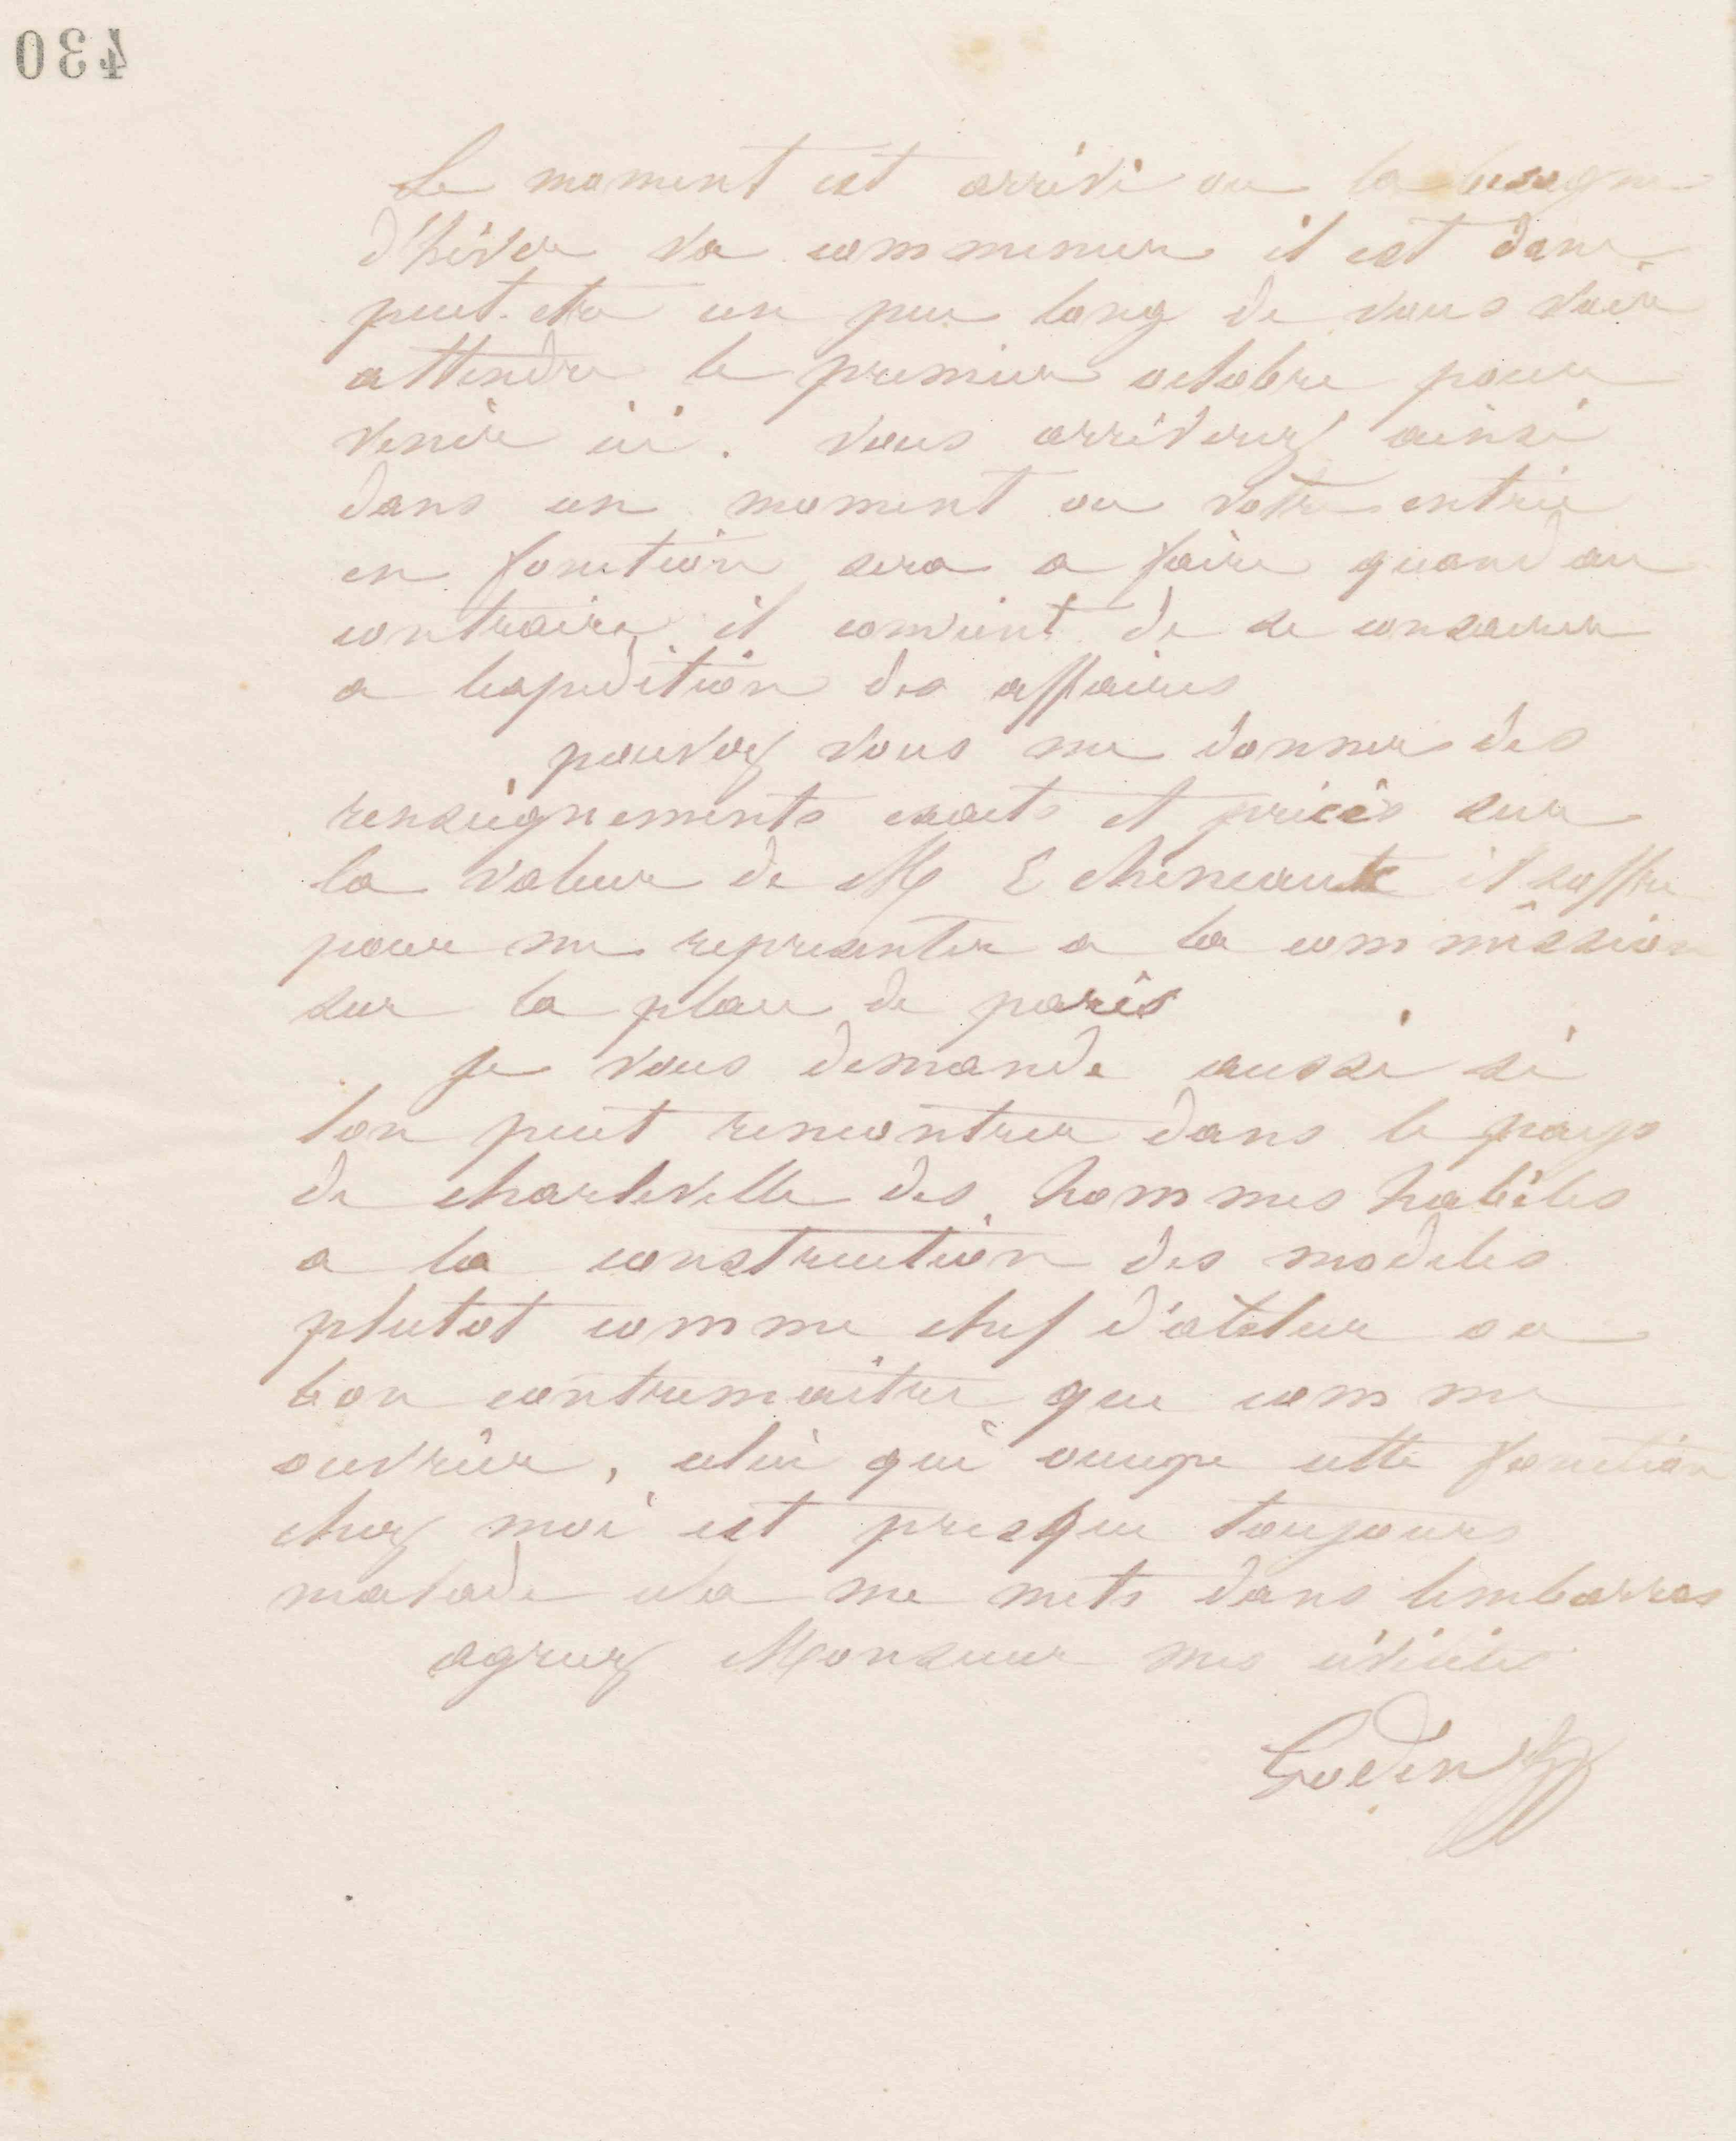 430
Le moment est arrivé ou la besogne
d'hiver va commencer il est donc
peut-etre un peu long de vous voir
attendre le premier octobre pour
venir ici. vous arriverez ainsi
dans un moment ou votre entrée
en fonction sera a faire quand au
contraire il convient de se consacrer
a lexpedition des affaires
pouvez vous me donner des
renseignements exacts et précis sur
la valeur de M E il soffre
pour me representer a la commission
sur la place de paris
je vous demande aussi si
lon peut rencontrer dans le pays
de charleville des hommes habiles
a la construction des modeles
plutot comme chef d'atelier ou
bon contremaitre que comme
ouvrier, celui qui occupe cette fonction
chez moi est presque toujours
malade cela me mets dans lembarras
agreez Monsieur mes civilités
Godin